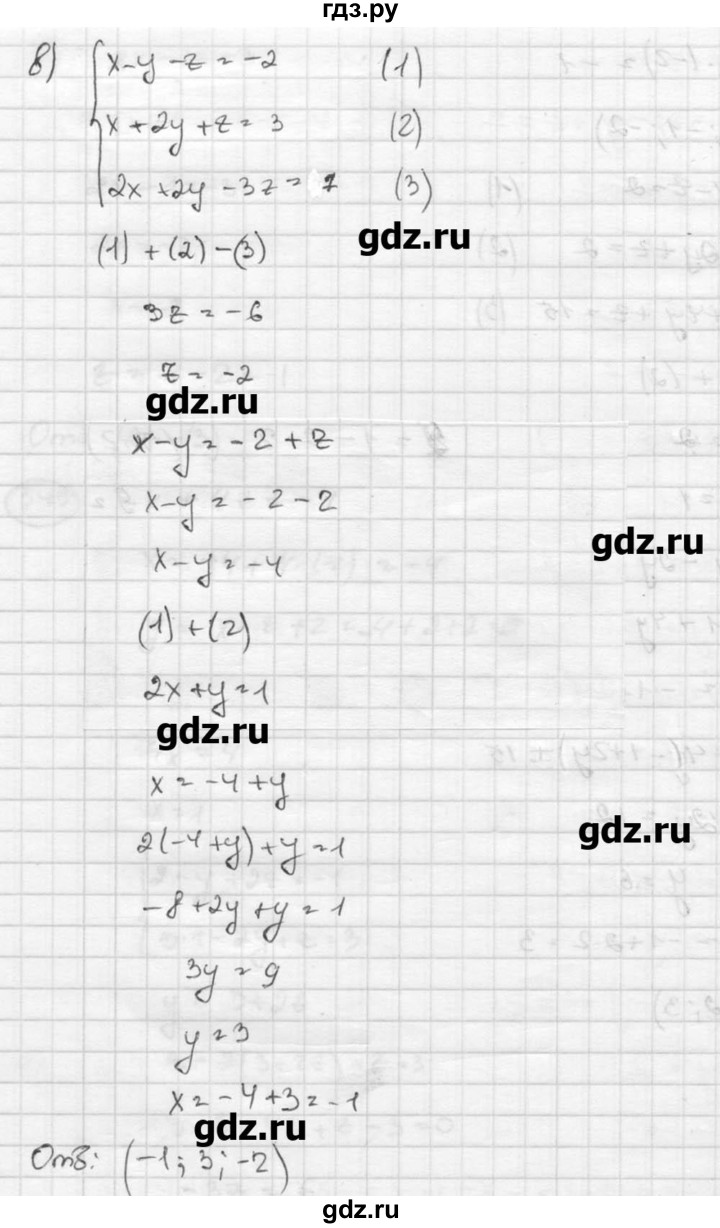 гдз.ру
8) { x - y - z = -2 (1)
x + 2y + z = 3 (2)
2x + 2y - 3z = 7 (3)
gdz.ru
(1) + (2) - (3)
3z = -6
z = -2
gdz.ru
x - y = -2 + z
x - y = -2 - 2
gdz.ru
x - y = -4
(1) + (2)
2x + y = 1
gdz.ru
x = -4 + y
gdz.ru
2(-4 + y) + y = 1
-8 + 2y + y = 1
3y = 9
y = 3
x = -4 + 3 = -1
gdz.ru
Отв: (-1; 3; -2)
gdz.ru